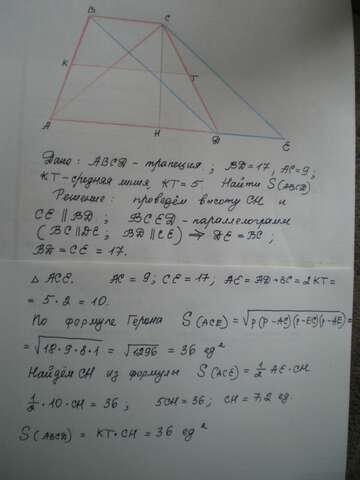 B C
K T
A H D E
Дано: ABCD - трапеция; BD=17, AC=9;
KT-средняя линия, KT=5. Найти S(ABCD)
Решение: проведём высоту CH и
CE ∥ BD; BCED - параллелограмм
(BC∥DE; BD∥CE) ⇒ DE=BC;
BD=CE=17.
△ ACE. AC=9; CE=17; AE=AD+BC=2KT=
=5·2=10.
По формуле Герона S(ACE)=√p(p-AC)(p-EC)(p-AE)=
=√18·9·8·1=√1296=36 ед²
Найдём CH из формулы S(ACE)=1/2 AE·CH
1/2·10·CH=36; 5CH=36; CH=7,2 ед.
S(ABCD)=KT·CH=36 ед²